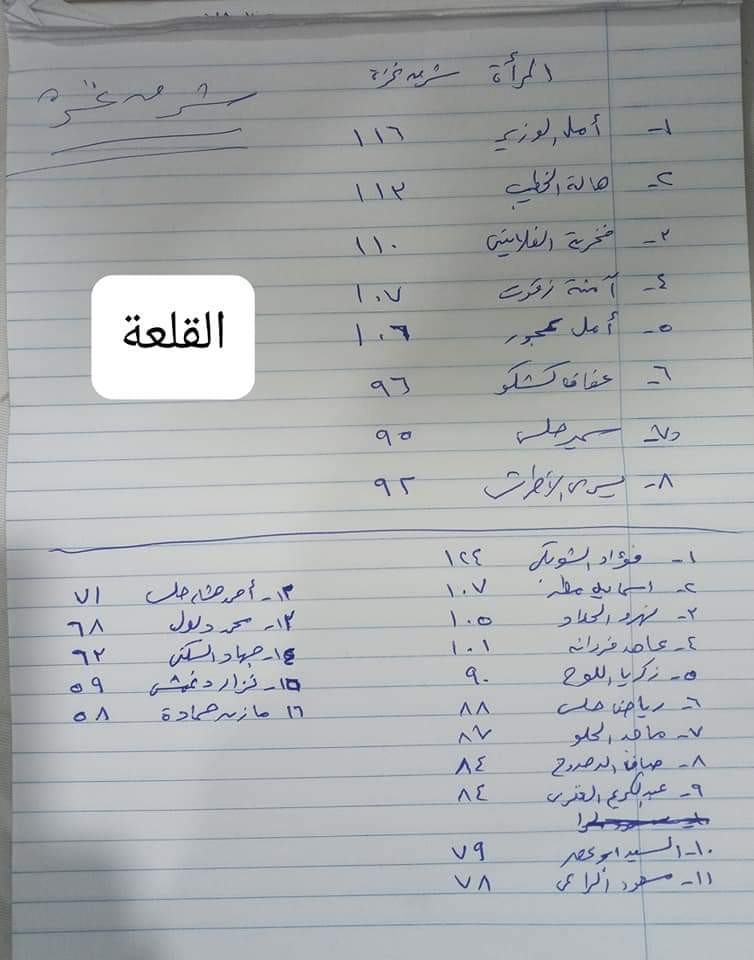 المرأة شرق غزة
شرق غزة
١- أمل الوزير ١١٦
٢- هالة الخطيب ١١٣
٣- فخرية الفلاييني ١١٠
٤- آمنة زقوت ١٠٧
القلعة
٥- أمل عجور ١٠٦
٦- عفاف كشكو ٩٦
٧- سمير حلس ٩٥
٨- يسرى الأطرش ٩٢
١- فؤاد الشوبكي ١٢٤
٢- اسماعيل مطر ١٠٧
٣- نهرو الحداد ١٠٥
٤- عاهد فروانة ١٠١
٥- زكريا اللوح ٩٠
٦- رياض حلس ٨٨
٧- ماجد الحلو ٨٧
٨- الدحدوح ٨٤
٩- عبدالكريم ٨٤
١٠- السيد ابو ٧٩
١١- مسعود الراعي ٧٨
١٢- أحمد هشام حلس ٧١
١٣- محمد دلول ٦٨
١٤- جهاد السكني ٦٢
١٥- نزار دغمش ٥٩
١٦ مازن حمادة ٥٨